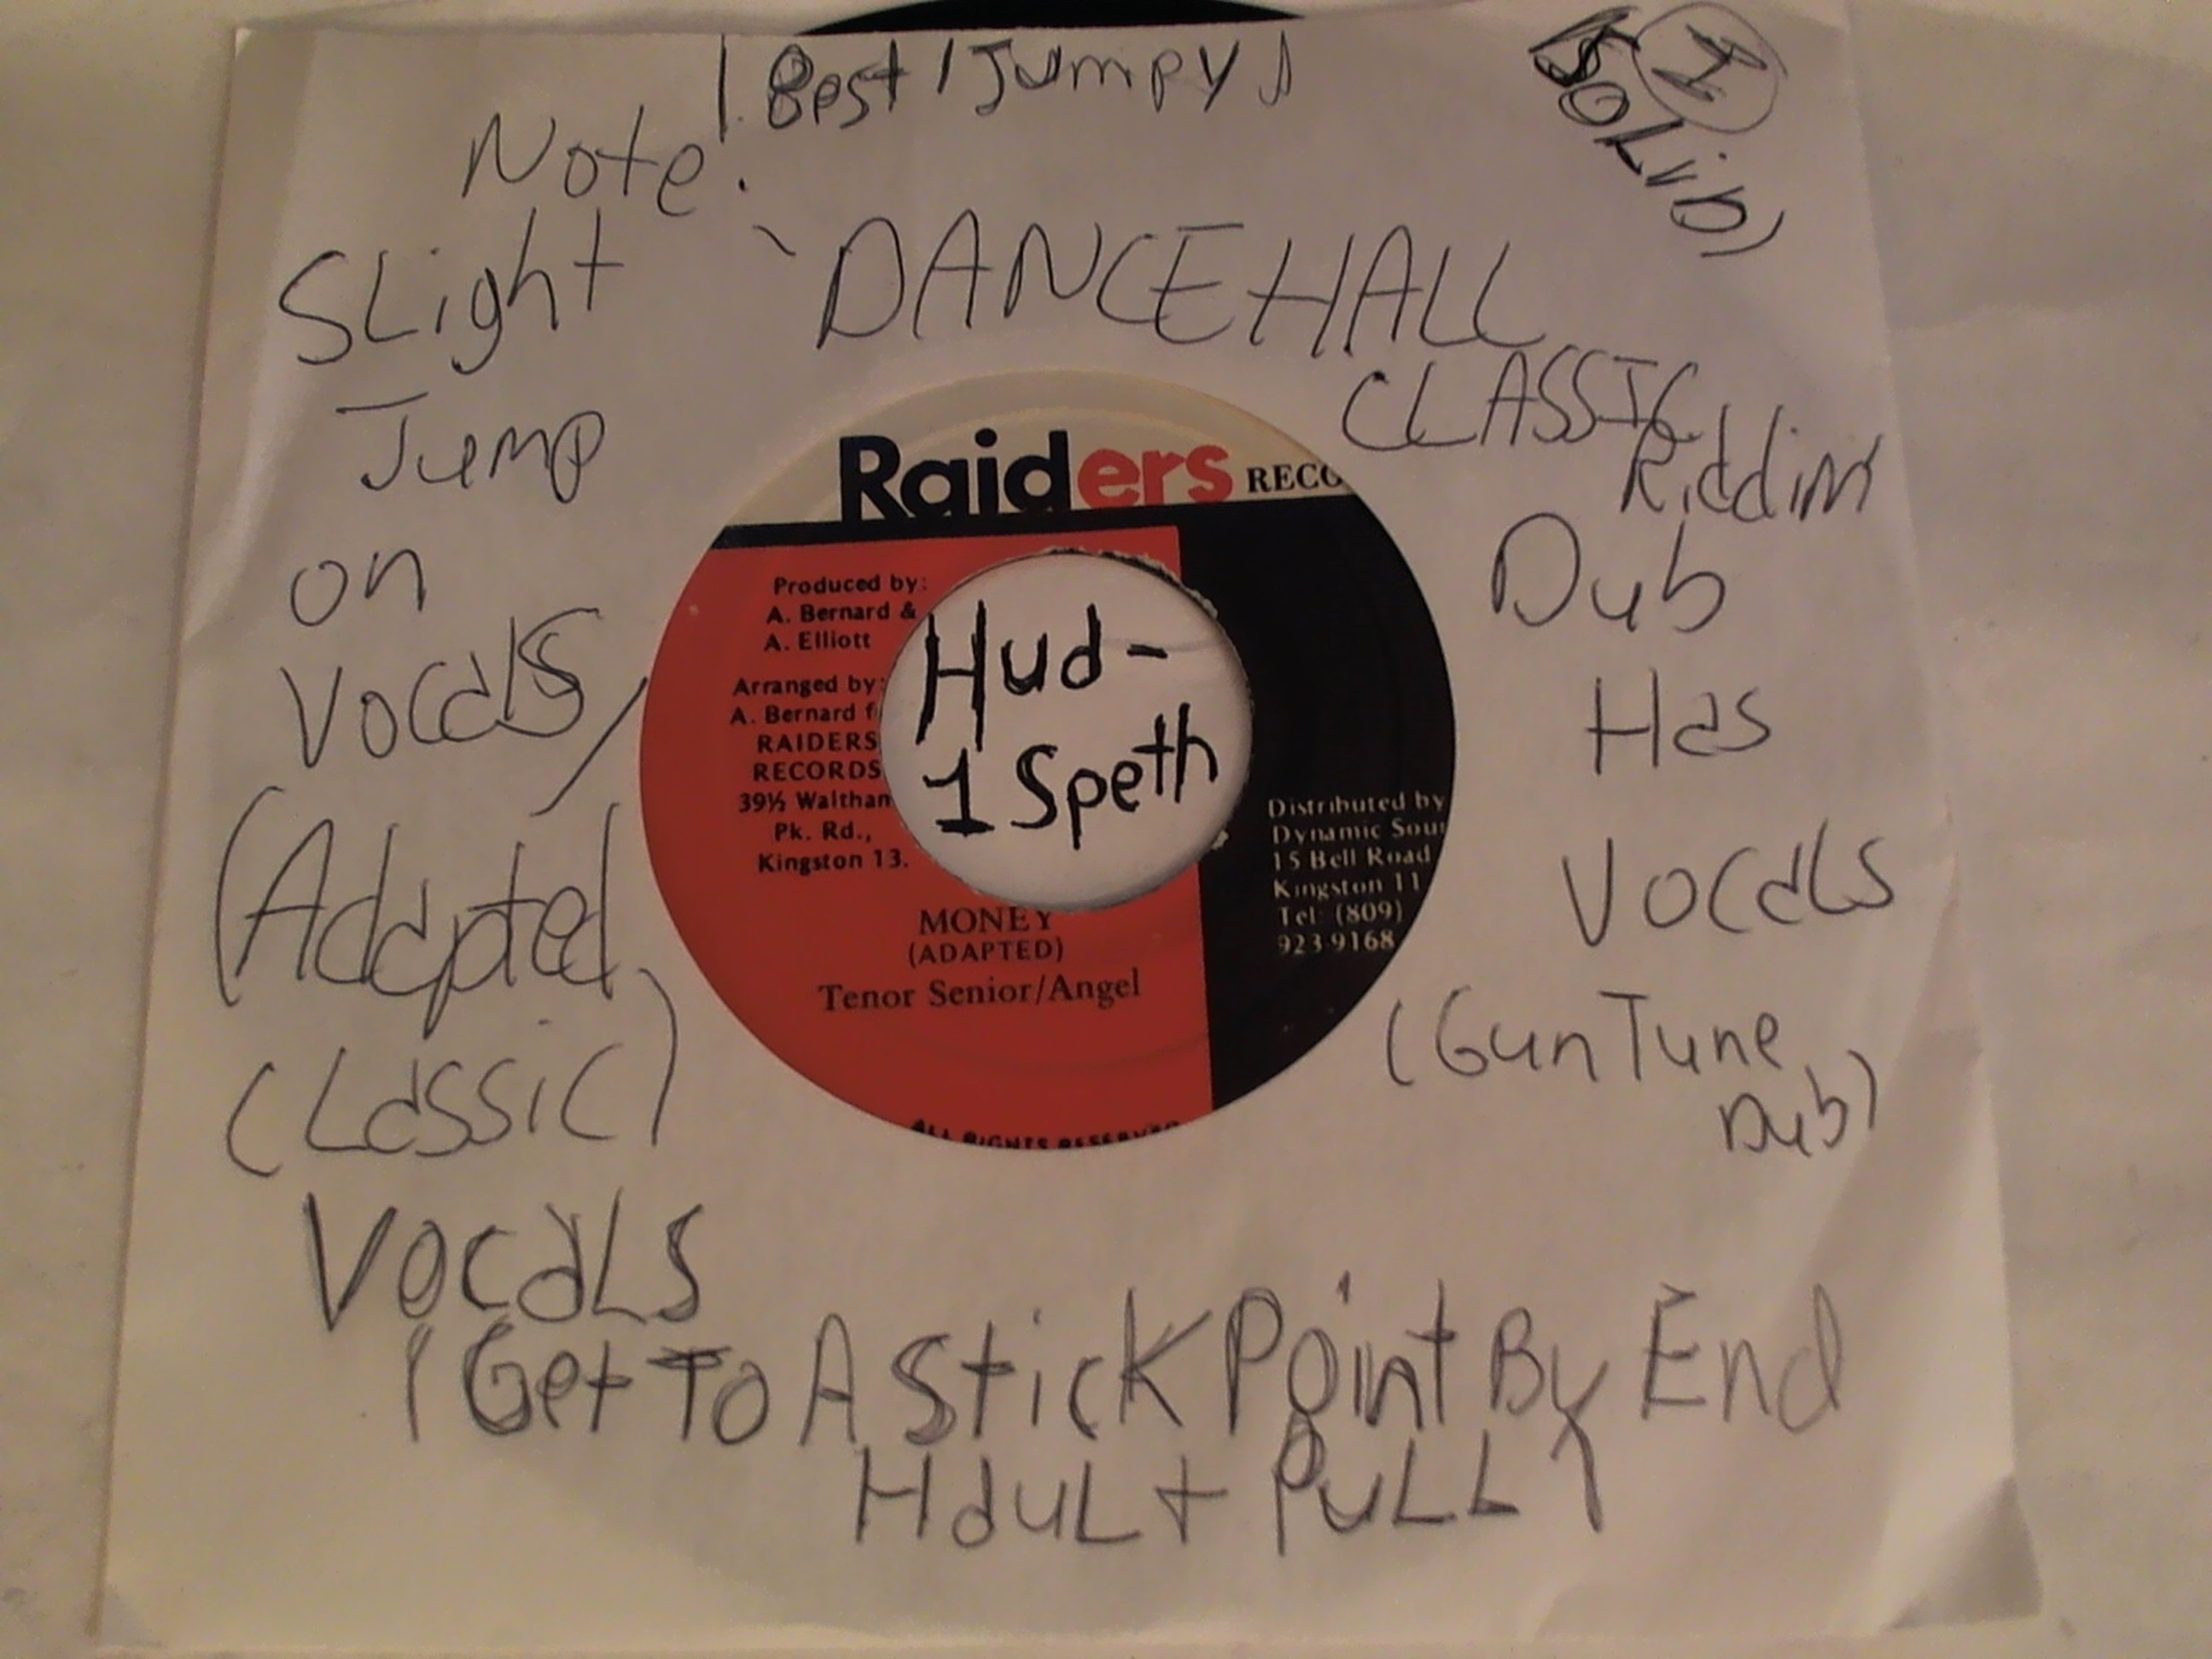 Best / Jumpy
Note:
SLight
Jump
on
VocaLs
(Adapted
CLassic)
VocaLs
DANCEHALL
CLASSIC
Riddim
Dub
Has
VocaLs
(Gun Tune
Dub)
(Get To A Stick Point By End
HauL + PuLL)
Raiders RECO
Produced by:
A. Bernard &
A. Elliott
Arranged by:
A. Bernard f
RAIDERS
RECORDS
39½ Waltham
Pk. Rd.,
Kingston 13.
Hud-
1 Speth
Distributed by
Dynamic Sou
15 Bell Road
Kingston 11
Tel: (809)
923-9168
MONEY
(ADAPTED)
Tenor Senior/Angel
ALL RIGHTS RESERVED